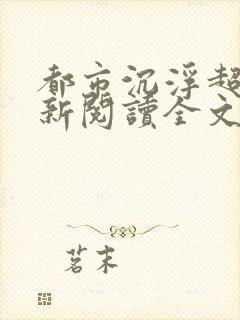 都市沉浮超
新閱讀全文
茗末